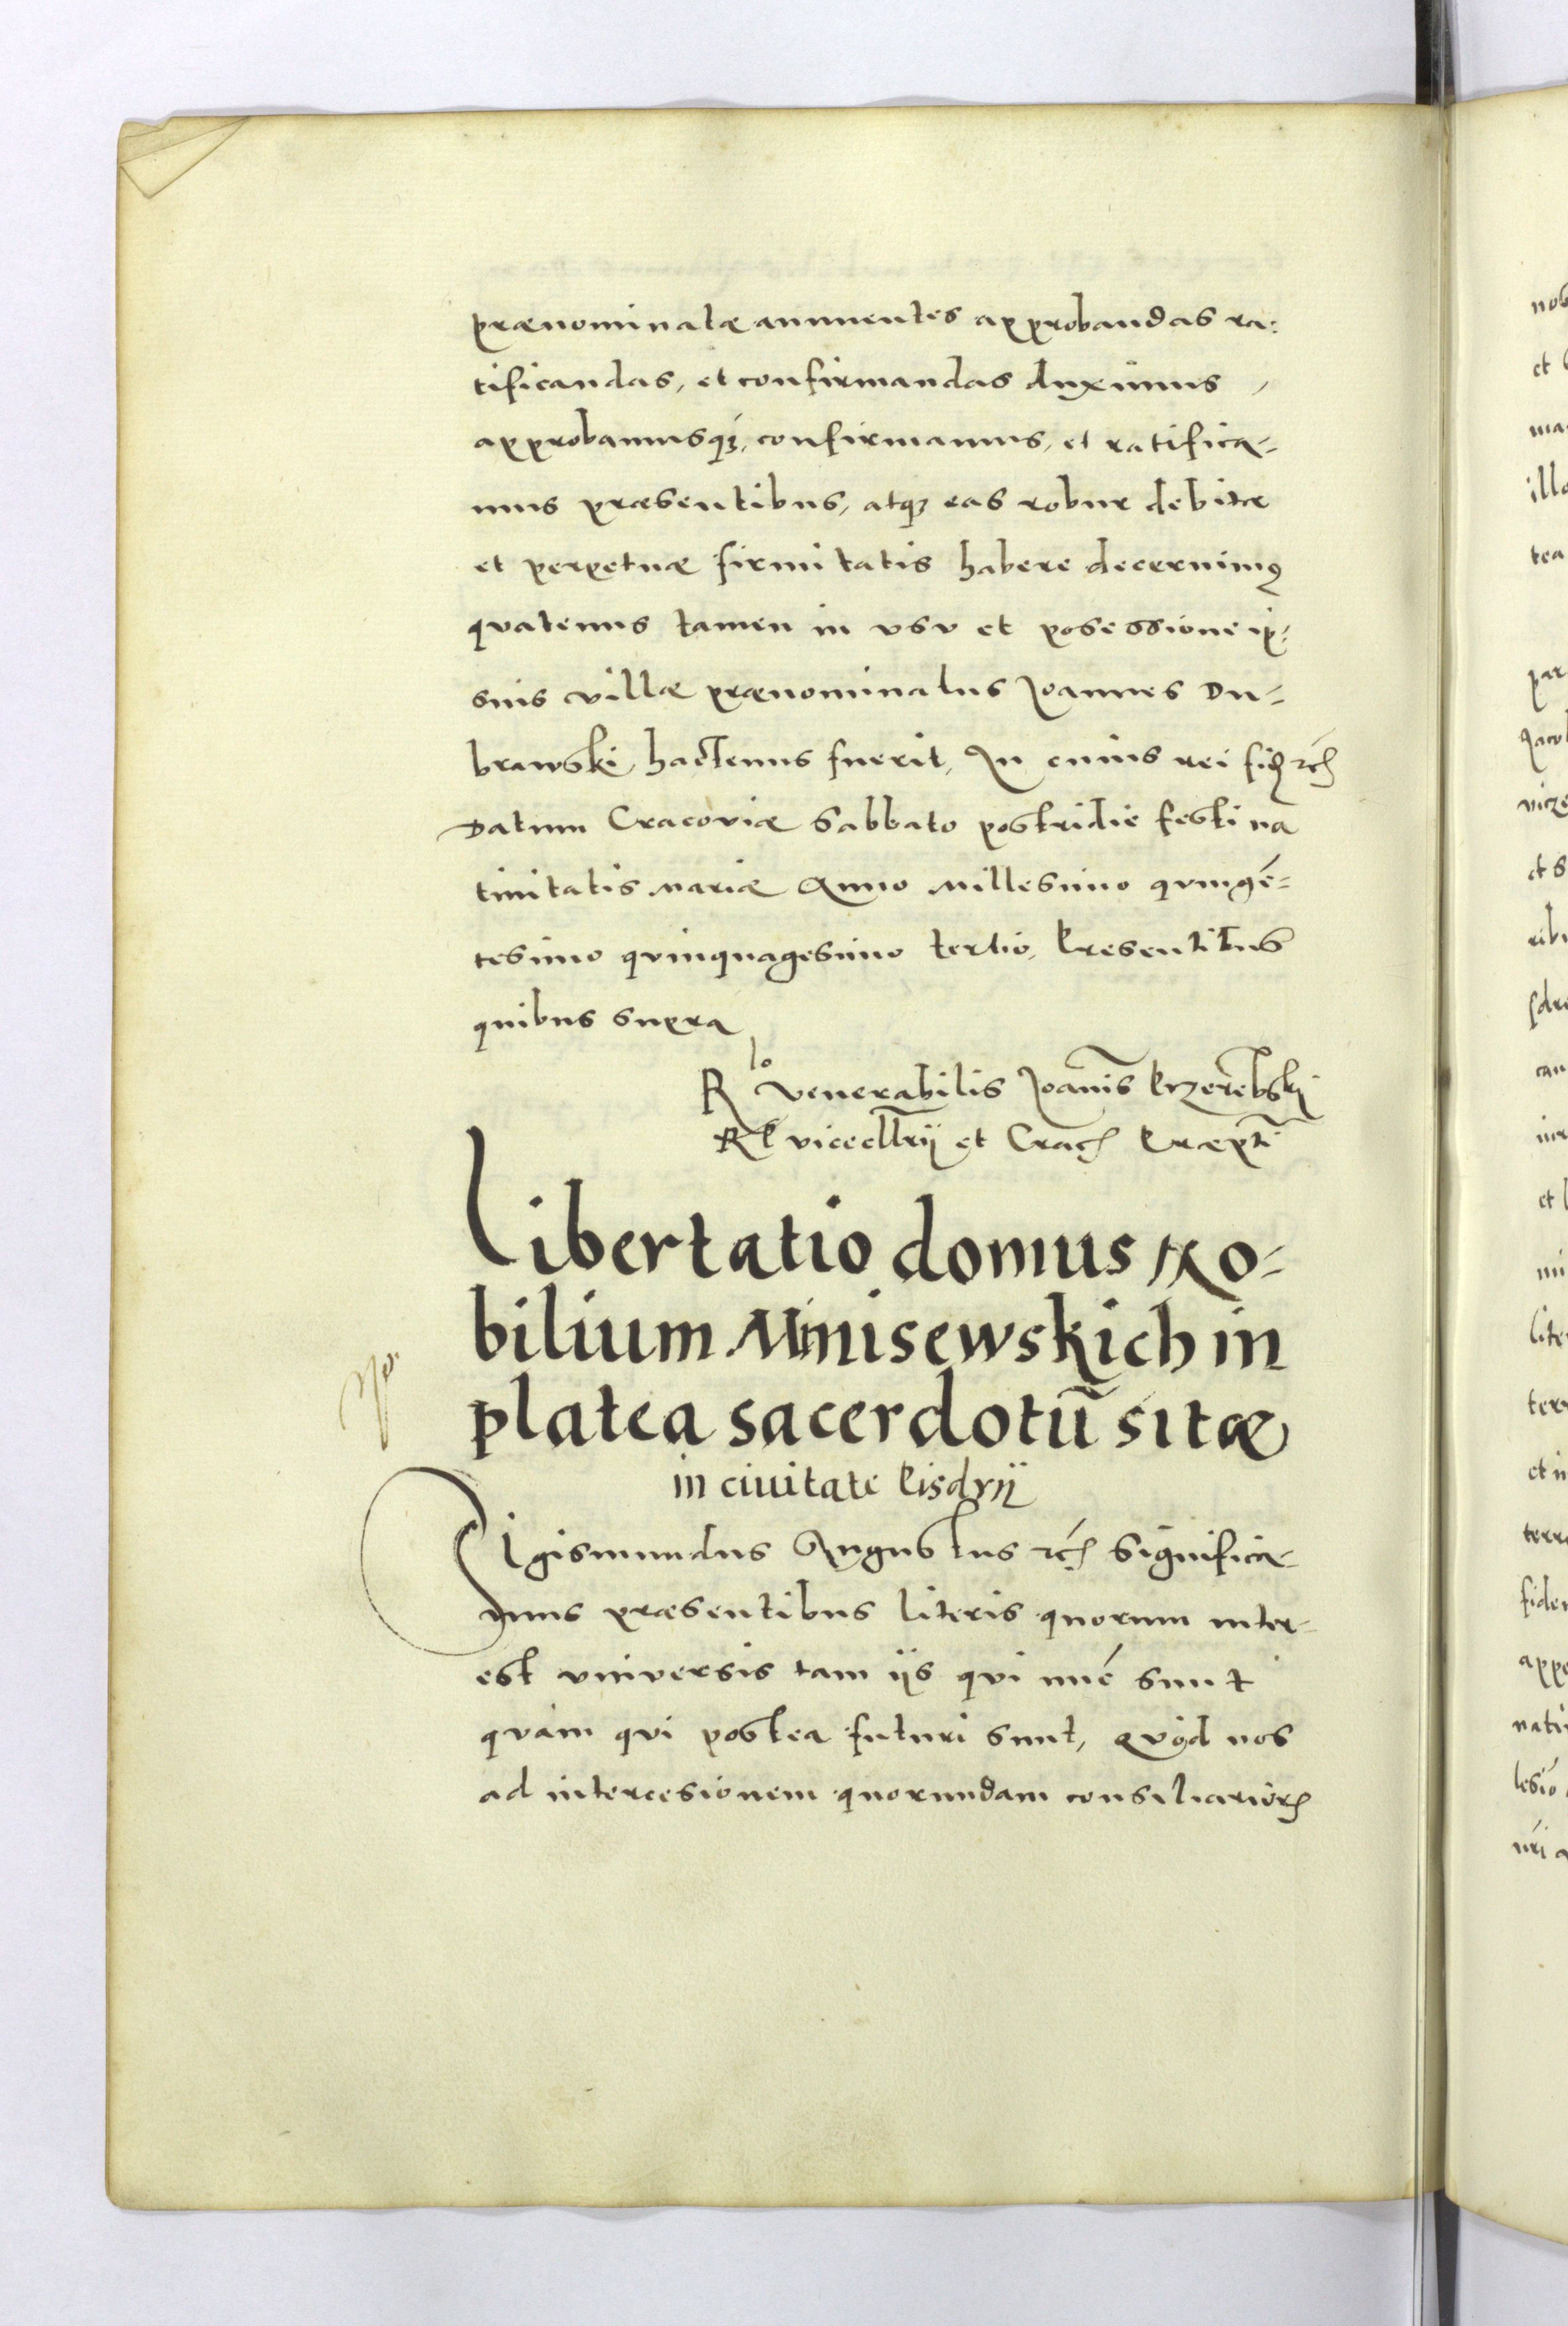 prænominatæ annuentes approbandas ra-
tificandas, et confirmandas duximus,
approbamusq3, confirmamus, et ratifica-
mus præsentibus, atq3 eas robur debitæ
et perpetuæ firmitatis habere decernimꝰ
quatenus tamen in vsv et posessione ip-
sius villæ prænominatus Joannes Du-
brawski hactenus fuerit, In cuius rei fid rc̃
Datum Cracoviæ Sabbato postridie festi na
tivitatis Mariæ Anno Millesimo qvingẽ-
tesimo qvinquagesimo tertio, Presentibus
quibus supra
Rlo Venerabilis Joãnis Przerẽbski
R P vicecllrij et Crac Præpti
Libertatio domus No-
bilium Mnisewskich in
platea sacerdotũ sitæ
in ciuitate Pisdrij
Sigismundus Augustus rc̃ Significa-
mus præsentibus literis quorum inter-
est vniversis tam ijs qvi nũc sunt
qvàm qvi postea futuri sunt, qvòd nos
ad intercesionem quorundam consiliariorꝝ
nob
et
ma
illa
tea
par
Jacob
et
rib
can
et
mi
lite
terr
et in
terra
fidem
appe
nati
lesiõ
nri a